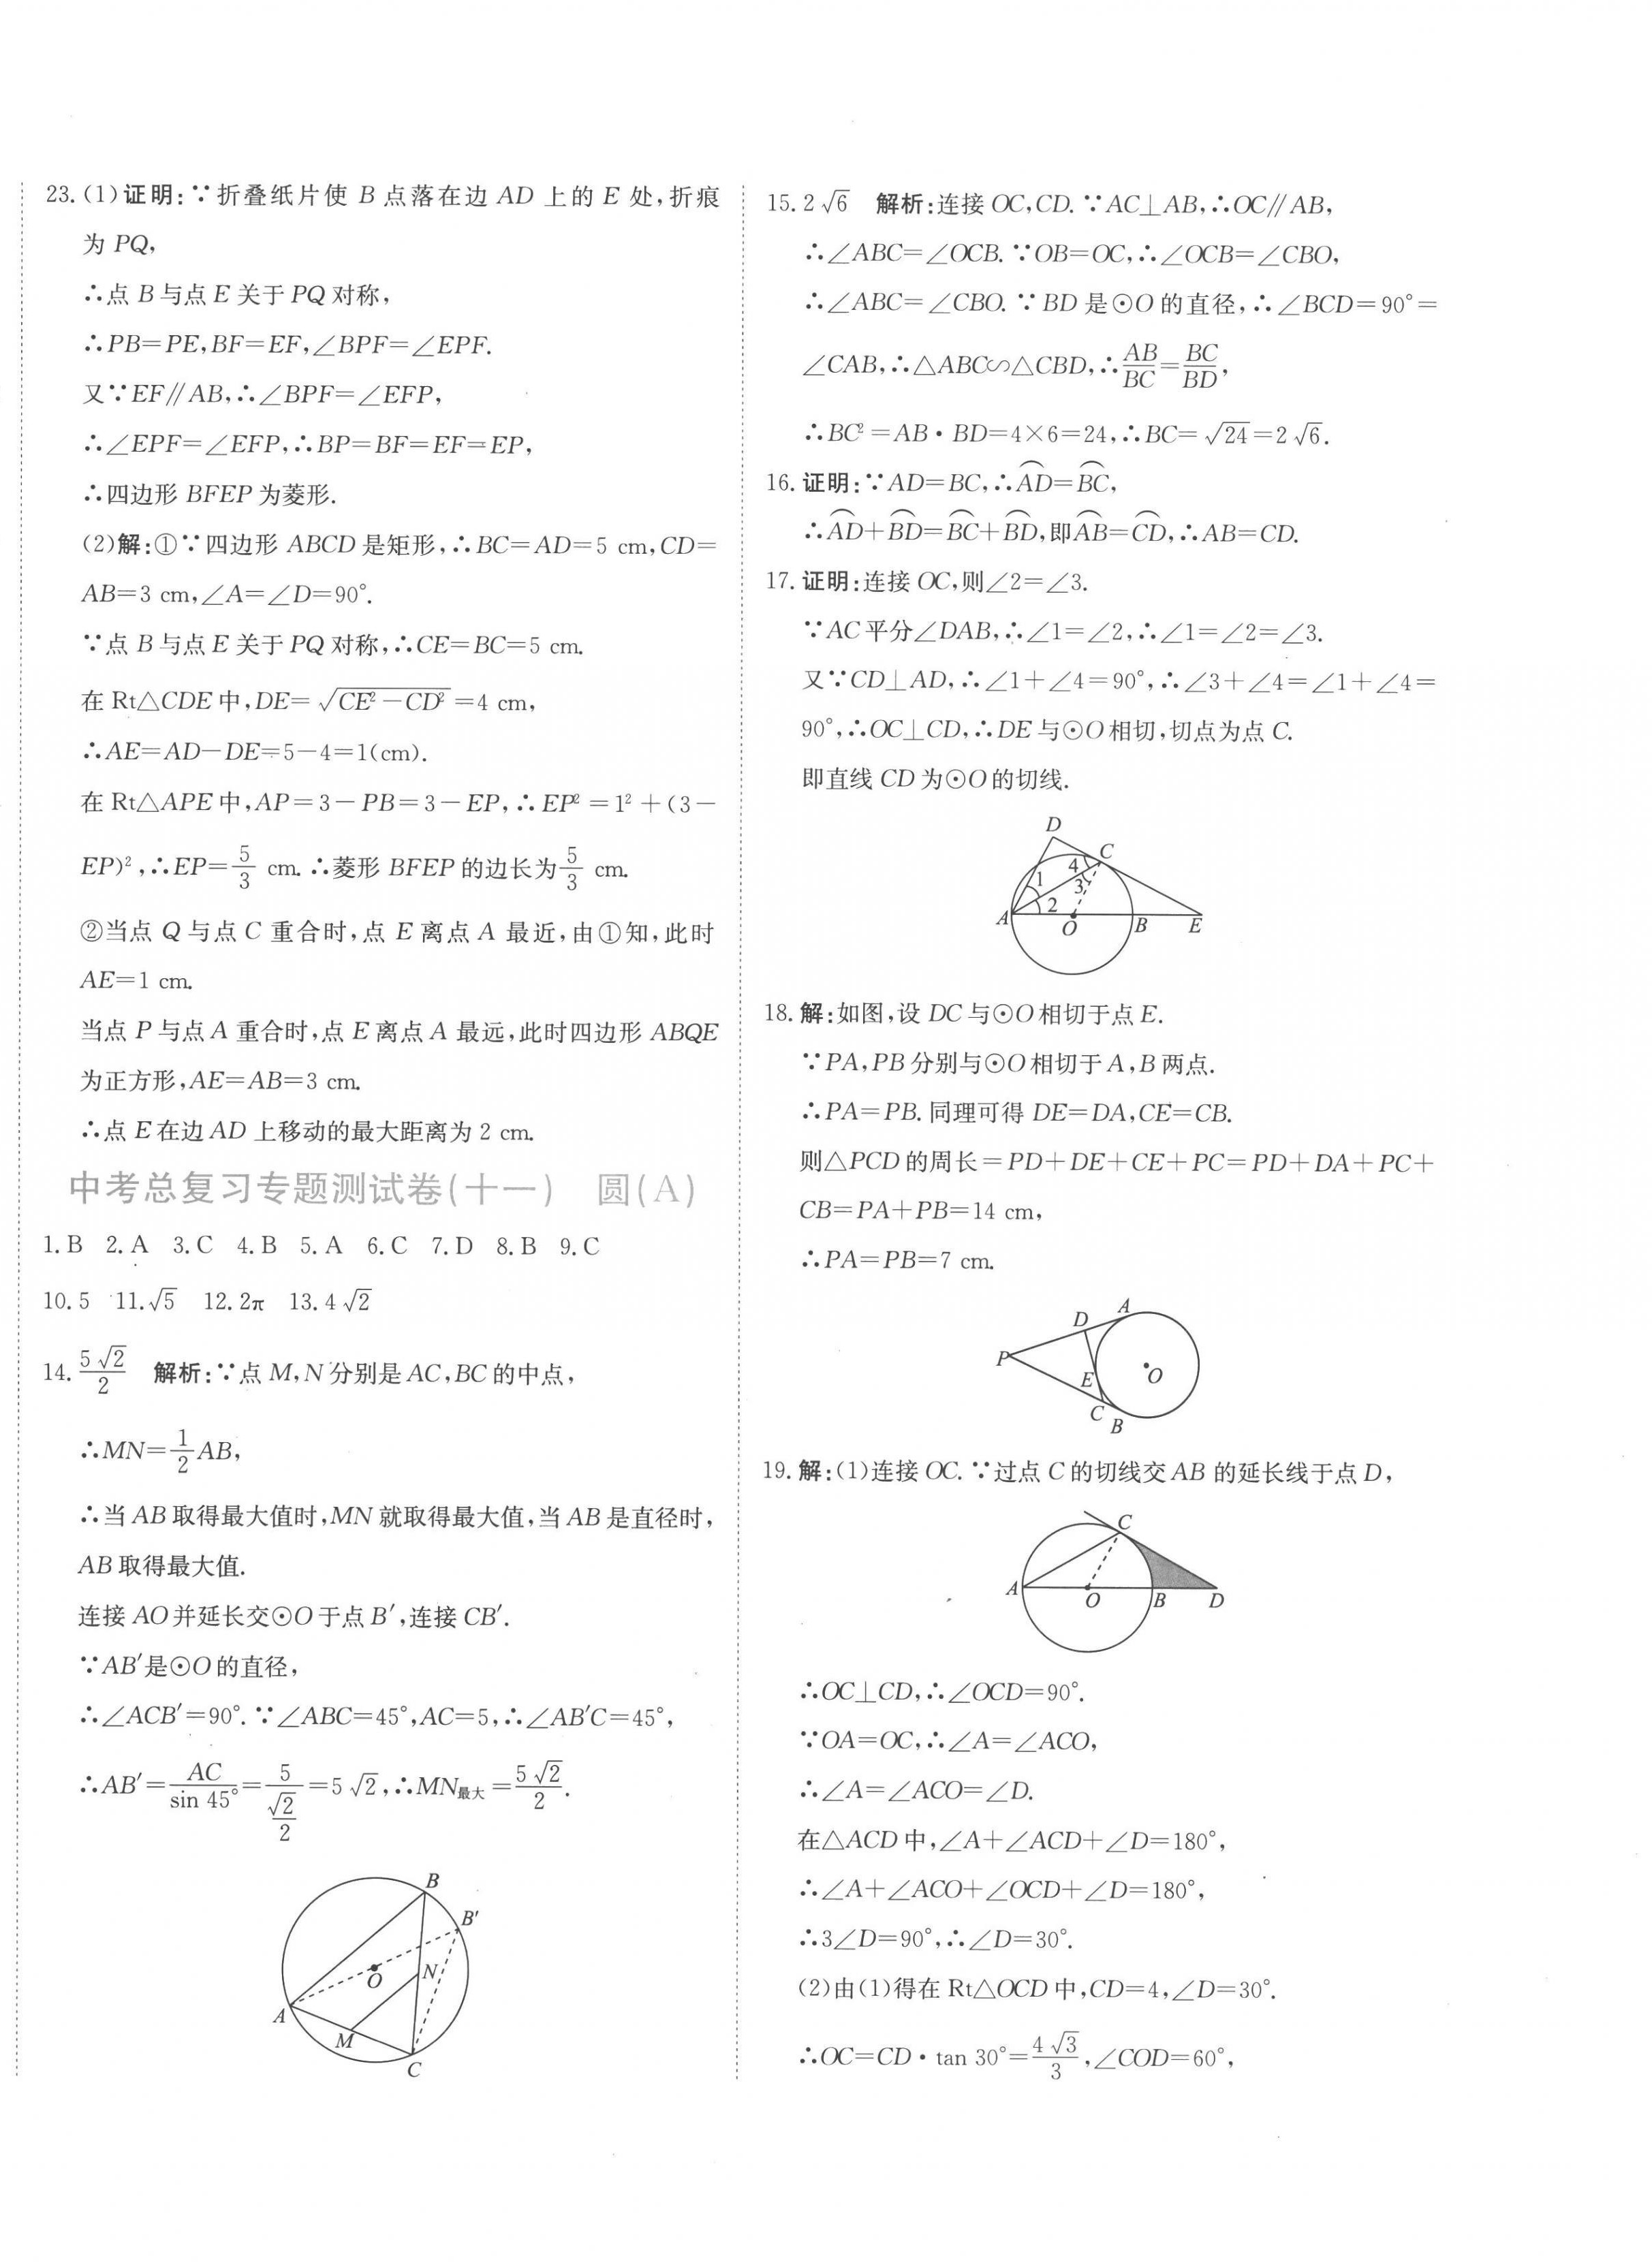 23. (1)证明:∵折叠纸片使 B 点落在边 AD 上的 E 处,折痕
为 PQ,
∴点 B 与点 E 关于 PQ 对称,
∴PB=PE,BF=EF,∠BPF=∠EPF.
又∵EF∥AB,∴∠BPF=∠EFP,
∴∠EPF=∠EFP,∴BP=BF=EF=EP,
∴四边形 BFEP 为菱形.
(2)解:①∵四边形 ABCD 是矩形,∴BC=AD=5 cm,CD=
AB=3 cm,∠A=∠D=90°.
∵点 B 与点 E 关于 PQ 对称,∴CE=BC=5 cm.
在 Rt△CDE 中,DE=√(CE²−CD²)=4 cm,
∴AE=AD−DE=5−4=1(cm).
在 Rt△APE 中,AP=3−PB=3−EP,∴EP²=1²+(3−
EP)²,∴EP=5/3 cm.∴菱形 BFEP 的边长为5/3 cm.
②当点 Q 与点 C 重合时,点 E 离点 A 最近,由①知,此时
AE=1 cm.
当点 P 与点 A 重合时,点 E 离点 A 最远,此时四边形 ABQE
为正方形,AE=AB=3 cm.
∴点 E 在边 AD 上移动的最大距离为 2 cm.
中考总复习专题测试卷(十一) 圆(A)
1. B 2. A 3. C 4. B 5. A 6. C 7. D 8. B 9. C
10. 5 11. √5 12. 2π 13. 4√2
14. 5√2/2 解析:∵点 M,N 分别是 AC,BC 的中点,
∴MN=1/2AB,
∴当 AB 取得最大值时,MN 就取得最大值,当 AB 是直径时,
AB 取得最大值.
连接 AO 并延长交⊙O 于点 B′,连接 CB′.
∵AB′是⊙O 的直径,
∴∠ACB′=90°.∵∠ABC=45°,AC=5,∴∠AB′C=45°,
∴AB′=AC/sin 45°=5/(√2/2)=5√2,∴MN最大=5√2/2.
B
B′
O
N
A
M
C
15. 2√6 解析:连接 OC,CD.∵AC⊥AB,∴OC∥AB,
∴∠ABC=∠OCB.∵OB=OC,∴∠OCB=∠CBO,
∴∠ABC=∠CBO.∵BD 是⊙O 的直径,∴∠BCD=90°=
∠CAB,∴△ABC∽△CBD,∴AB/BC=BC/BD,
∴BC²=AB·BD=4×6=24,∴BC=√24=2√6.
16. 证明:∵AD=BC,∴A͡D=B͡C,
∴A͡D+B͡D=B͡C+B͡D,即A͡B=C͡D,∴AB=CD.
17. 证明:连接 OC,则∠2=∠3.
∵AC 平分∠DAB,∴∠1=∠2,∴∠1=∠2=∠3.
又∵CD⊥AD,∴∠1+∠4=90°,∴∠3+∠4=∠1+∠4=
90°,∴OC⊥CD,∴DE 与⊙O 相切,切点为点 C.
即直线 CD 为⊙O 的切线.
D
C
4
1 3
2
A O B E
18. 解:如图,设 DC 与⊙O 相切于点 E.
∵PA,PB 分别与⊙O 相切于 A,B 两点.
∴PA=PB.同理可得 DE=DA,CE=CB.
则△PCD 的周长=PD+DE+CE+PC=PD+DA+PC+
CB=PA+PB=14 cm,
∴PA=PB=7 cm.
A
D
P
E O
C
B
19. 解:(1)连接 OC.∵过点 C 的切线交 AB 的延长线于点 D,
C
A O B D
∴OC⊥CD,∴∠OCD=90°.
∵OA=OC,∴∠A=∠ACO,
∴∠A=∠ACO=∠D.
在△ACD 中,∠A+∠ACD+∠D=180°,
∴∠A+∠ACO+∠OCD+∠D=180°,
∴3∠D=90°,∴∠D=30°.
(2)由(1)得在 Rt△OCD 中,CD=4,∠D=30°.
∴OC=CD·tan 30°=4√3/3,∠COD=60°,